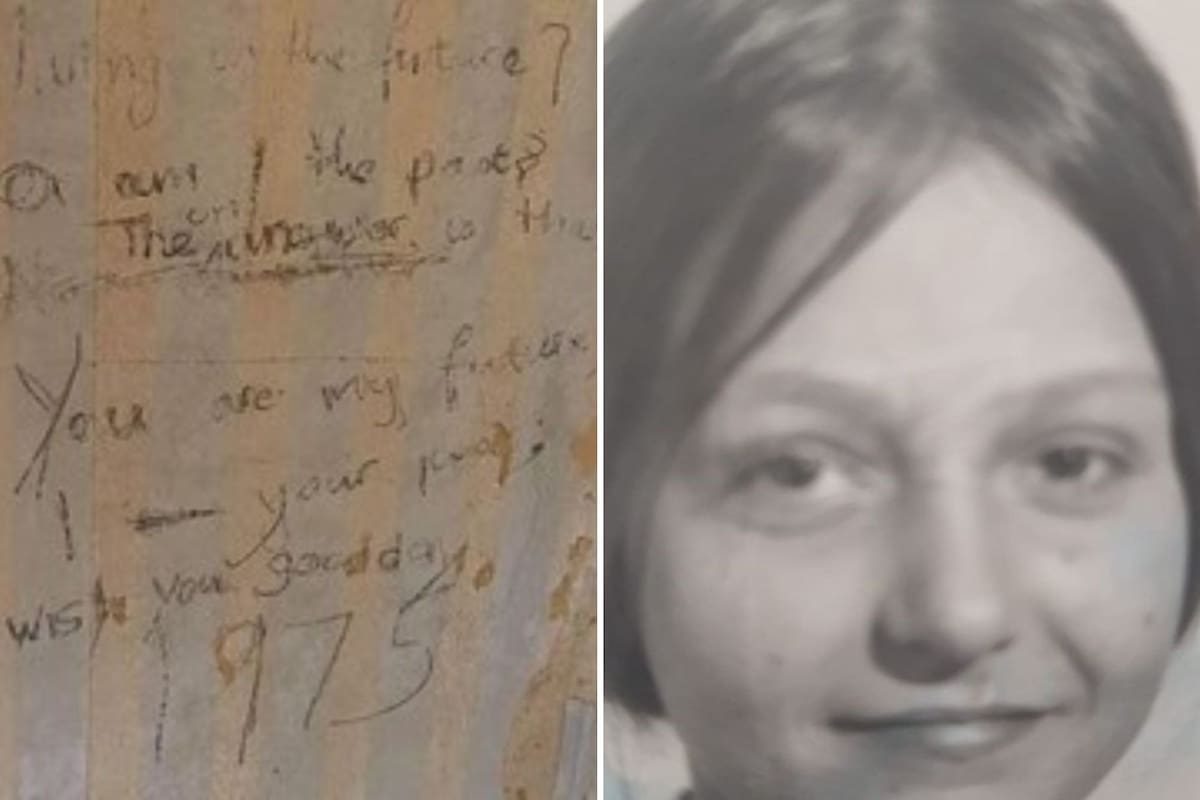 living in the future?
Or am I the past?
The only answer is this
You are my future,
I — your past.
wish you good day.
1975